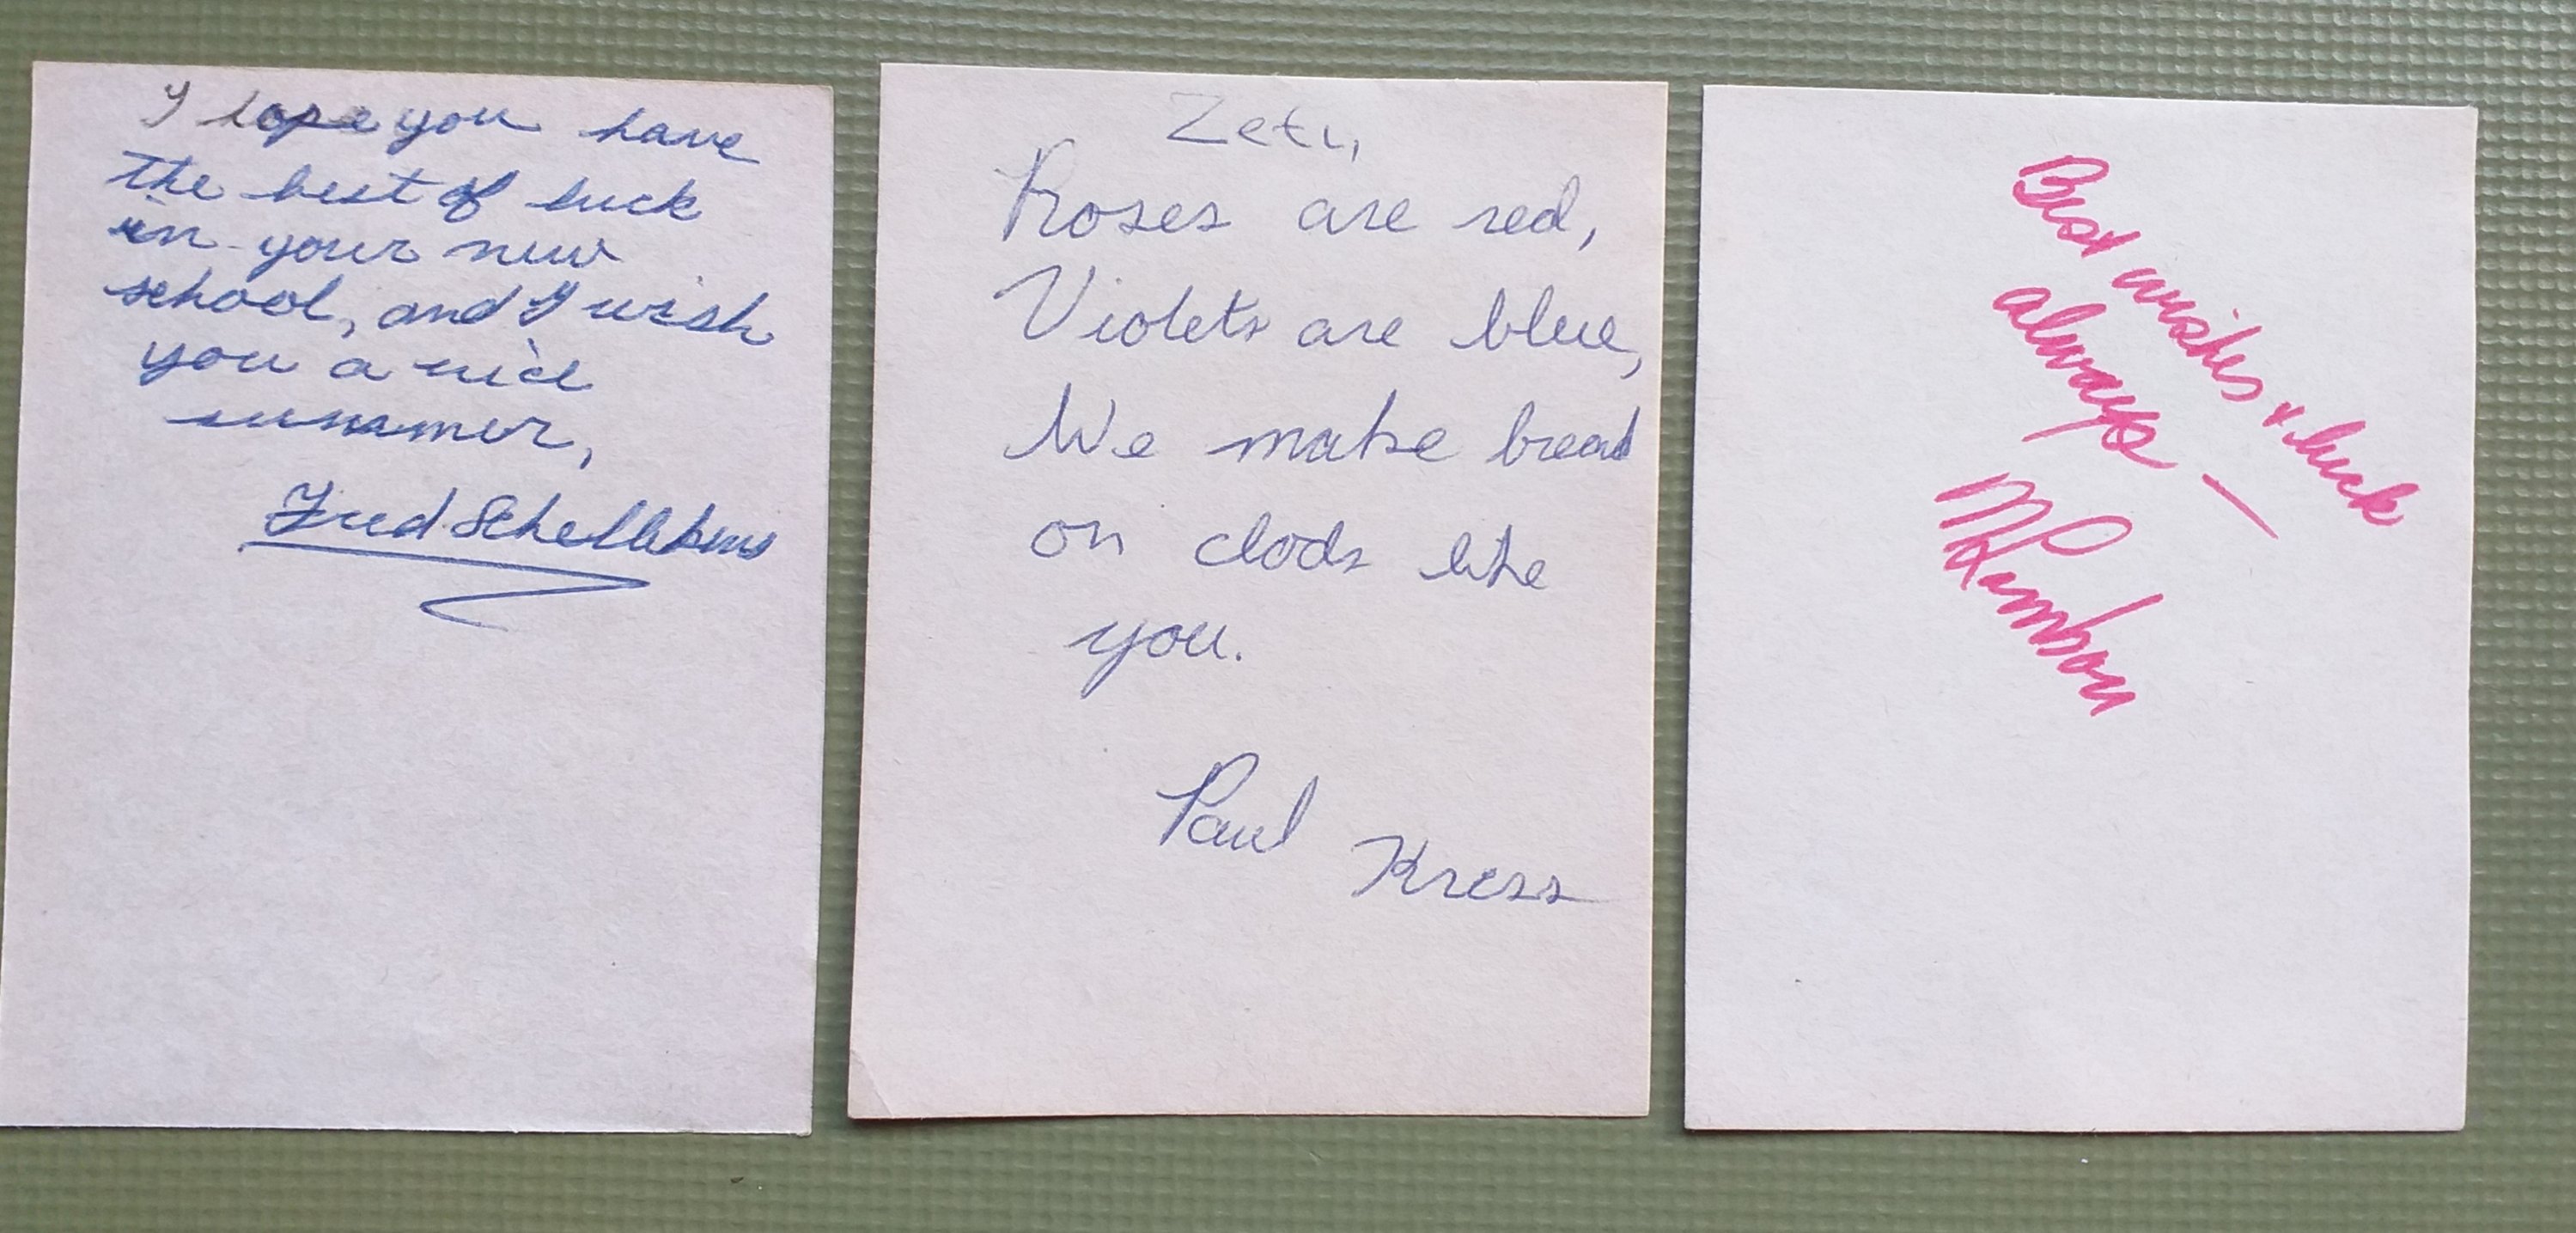 I hope you have
the best of luck
in your new
school, and I wish
you a nice
summer,
Fred Schellekens
Zeti,
Roses are red,
Violets are blue,
We make bread
on clods like
you.
Paul
Kress
Best wishes & luck
always —